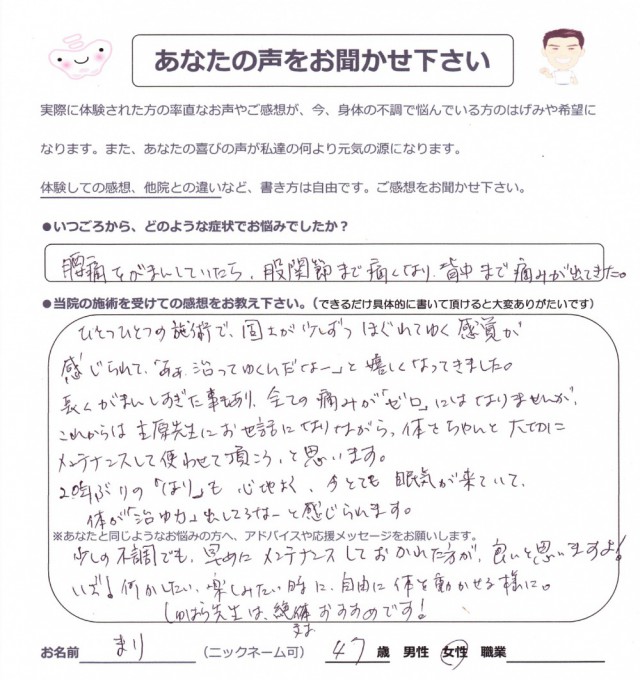 あなたの声をお聞かせ下さい
実際に体験された方の率直なお声やご感想が、今、身体の不調で悩んでいる方のはげみや希望に
なります。また、あなたの喜びの声が私達の何より元気の源になります。
体験しての感想、他院との違いなど、書き方は自由です。ご感想をお聞かせ下さい。
●いつごろから、どのような症状でお悩みでしたか？
腰痛をがまんしていたら、股関節まで痛くなり、背中まで痛みが出てきた。
●当院の施術を受けての感想をお教え下さい。（できるだけ具体的に書いて頂けると大変ありがたいです）
ひとつひとつの施術で、固さが少しずつほぐれてゆく感覚が
感じられて、「あぁ、治ってゆくんだなー」と嬉しくなってきました。
長くがまんしすぎた事もあり、全ての痛みが「ゼロ」にはなりませんが、
これからは 原先生にお世話になりながら、体をちゃんと大切に
メンテナンスして使わせて頂こう、と思います。
20年ぶりの「はり」も心地よく、今とても眠気が来ていて、
体が「治ゆ力」出してるなーと感じられます。
※あなたと同じようなお悩みの方へ、アドバイスや応援メッセージをお願いします。
少しの不調でも、早めにメンテナンスしておかれた方が、良いと思いますよ！
いざ！何かしたい、楽しみたい時に、自由に体を動かせる様に。
しのはら先生は、絶体おすすめです！
お名前 まり （ニックネーム可） 47 歳 男性 女性 職業